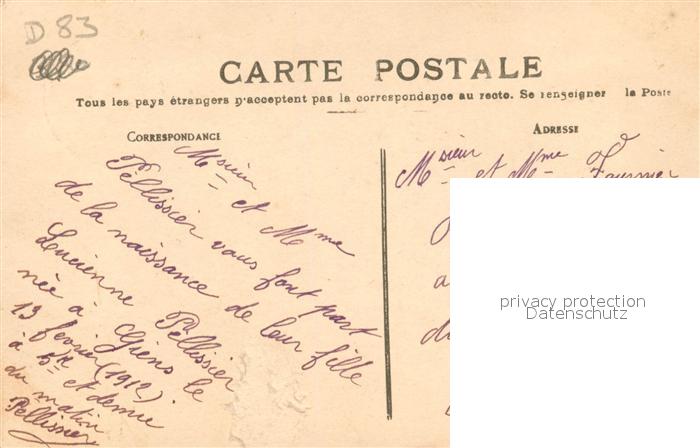 D 83
CARTE POSTALE
Tous les pays étrangers n'acceptent pas la correspondance au recto. Se renseigner la Poste
CORRESPONDANCE
ADRESSE
Msieur et Mme
Pellissier vous font part
de la naissance de leur fille
Lucienne Pellissier
née à Giens le
13 février (1912).
à 5h et demie
du matin
Pellissier
Msieur et Mme Fournier
privacy protection
Datenschutz